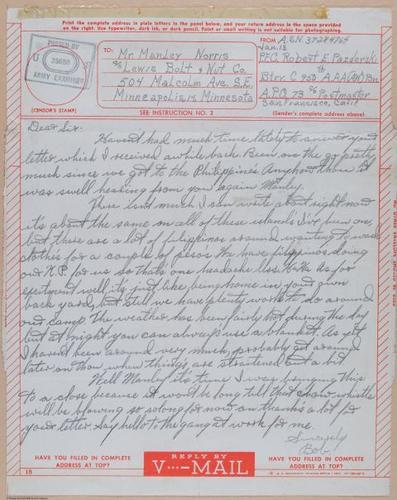 Print the complete address in plain letters in the panel below, and your return address in the space provided
on the right. Use typewriter, dark ink, or dark pencil. Faint or small writing is not suitable for photographing.
PASSED BY
U S
ARMY EXAMINER
(CENSOR'S STAMP)
TO:
Mr. Manley Norris
℅ Lewis Bolt & Nut Co.
504 Malcolm Ave. S.E.
Minneapolis, 14, Minnesota
SEE INSTRUCTION NO. 2
FROM
Jan. 18
PFC. Robert E. Pazderski
Btry. C 950 AAA (AW) Bn
A.P.O. 73 ℅ Postmaster
San Francisco, Calif
(Sender's complete address above)
Dear Sir:
Havent had much time lately to answer your
letter which I received awhile back. Been on the go pretty
much since we got to the Philippines. Anyhow there it
was swell hearing from you again Manley.
There isnt much I can write about right now
it's about the same on all of these islands I've been on,
but there are a lot of filipinos around wanting to wash
clothes for a couple of pesos. We have filipinos doing
our K.P. for us so thats one headache less. As for
excitement well its just like being home in your own
back yard, but still we have plenty work to do around
our camp. The weather has been fairly hot during the day
but at night you can always use a blanket. As yet
I havent been around very much, probably get around
later on when things are straitened out a bit.
Well Manley its time I was bringing this
to a close because it wont be long till that chow whistle
will be blowing so solong for now an thanks a lot for
your letter. Say hello to the gang at work for me.
Sincerely
Bob
HAVE YOU FILLED IN COMPLETE
ADDRESS AT TOP?
REPLY BY
V···—MAIL
HAVE YOU FILLED IN COMPLETE
ADDRESS AT TOP?